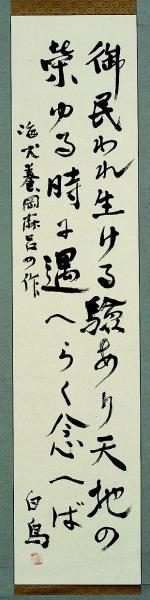 御民われ生ける驗あり天地の
榮ゆる時に遇へらく念へば
海犬養岡麻呂の作
白鳥